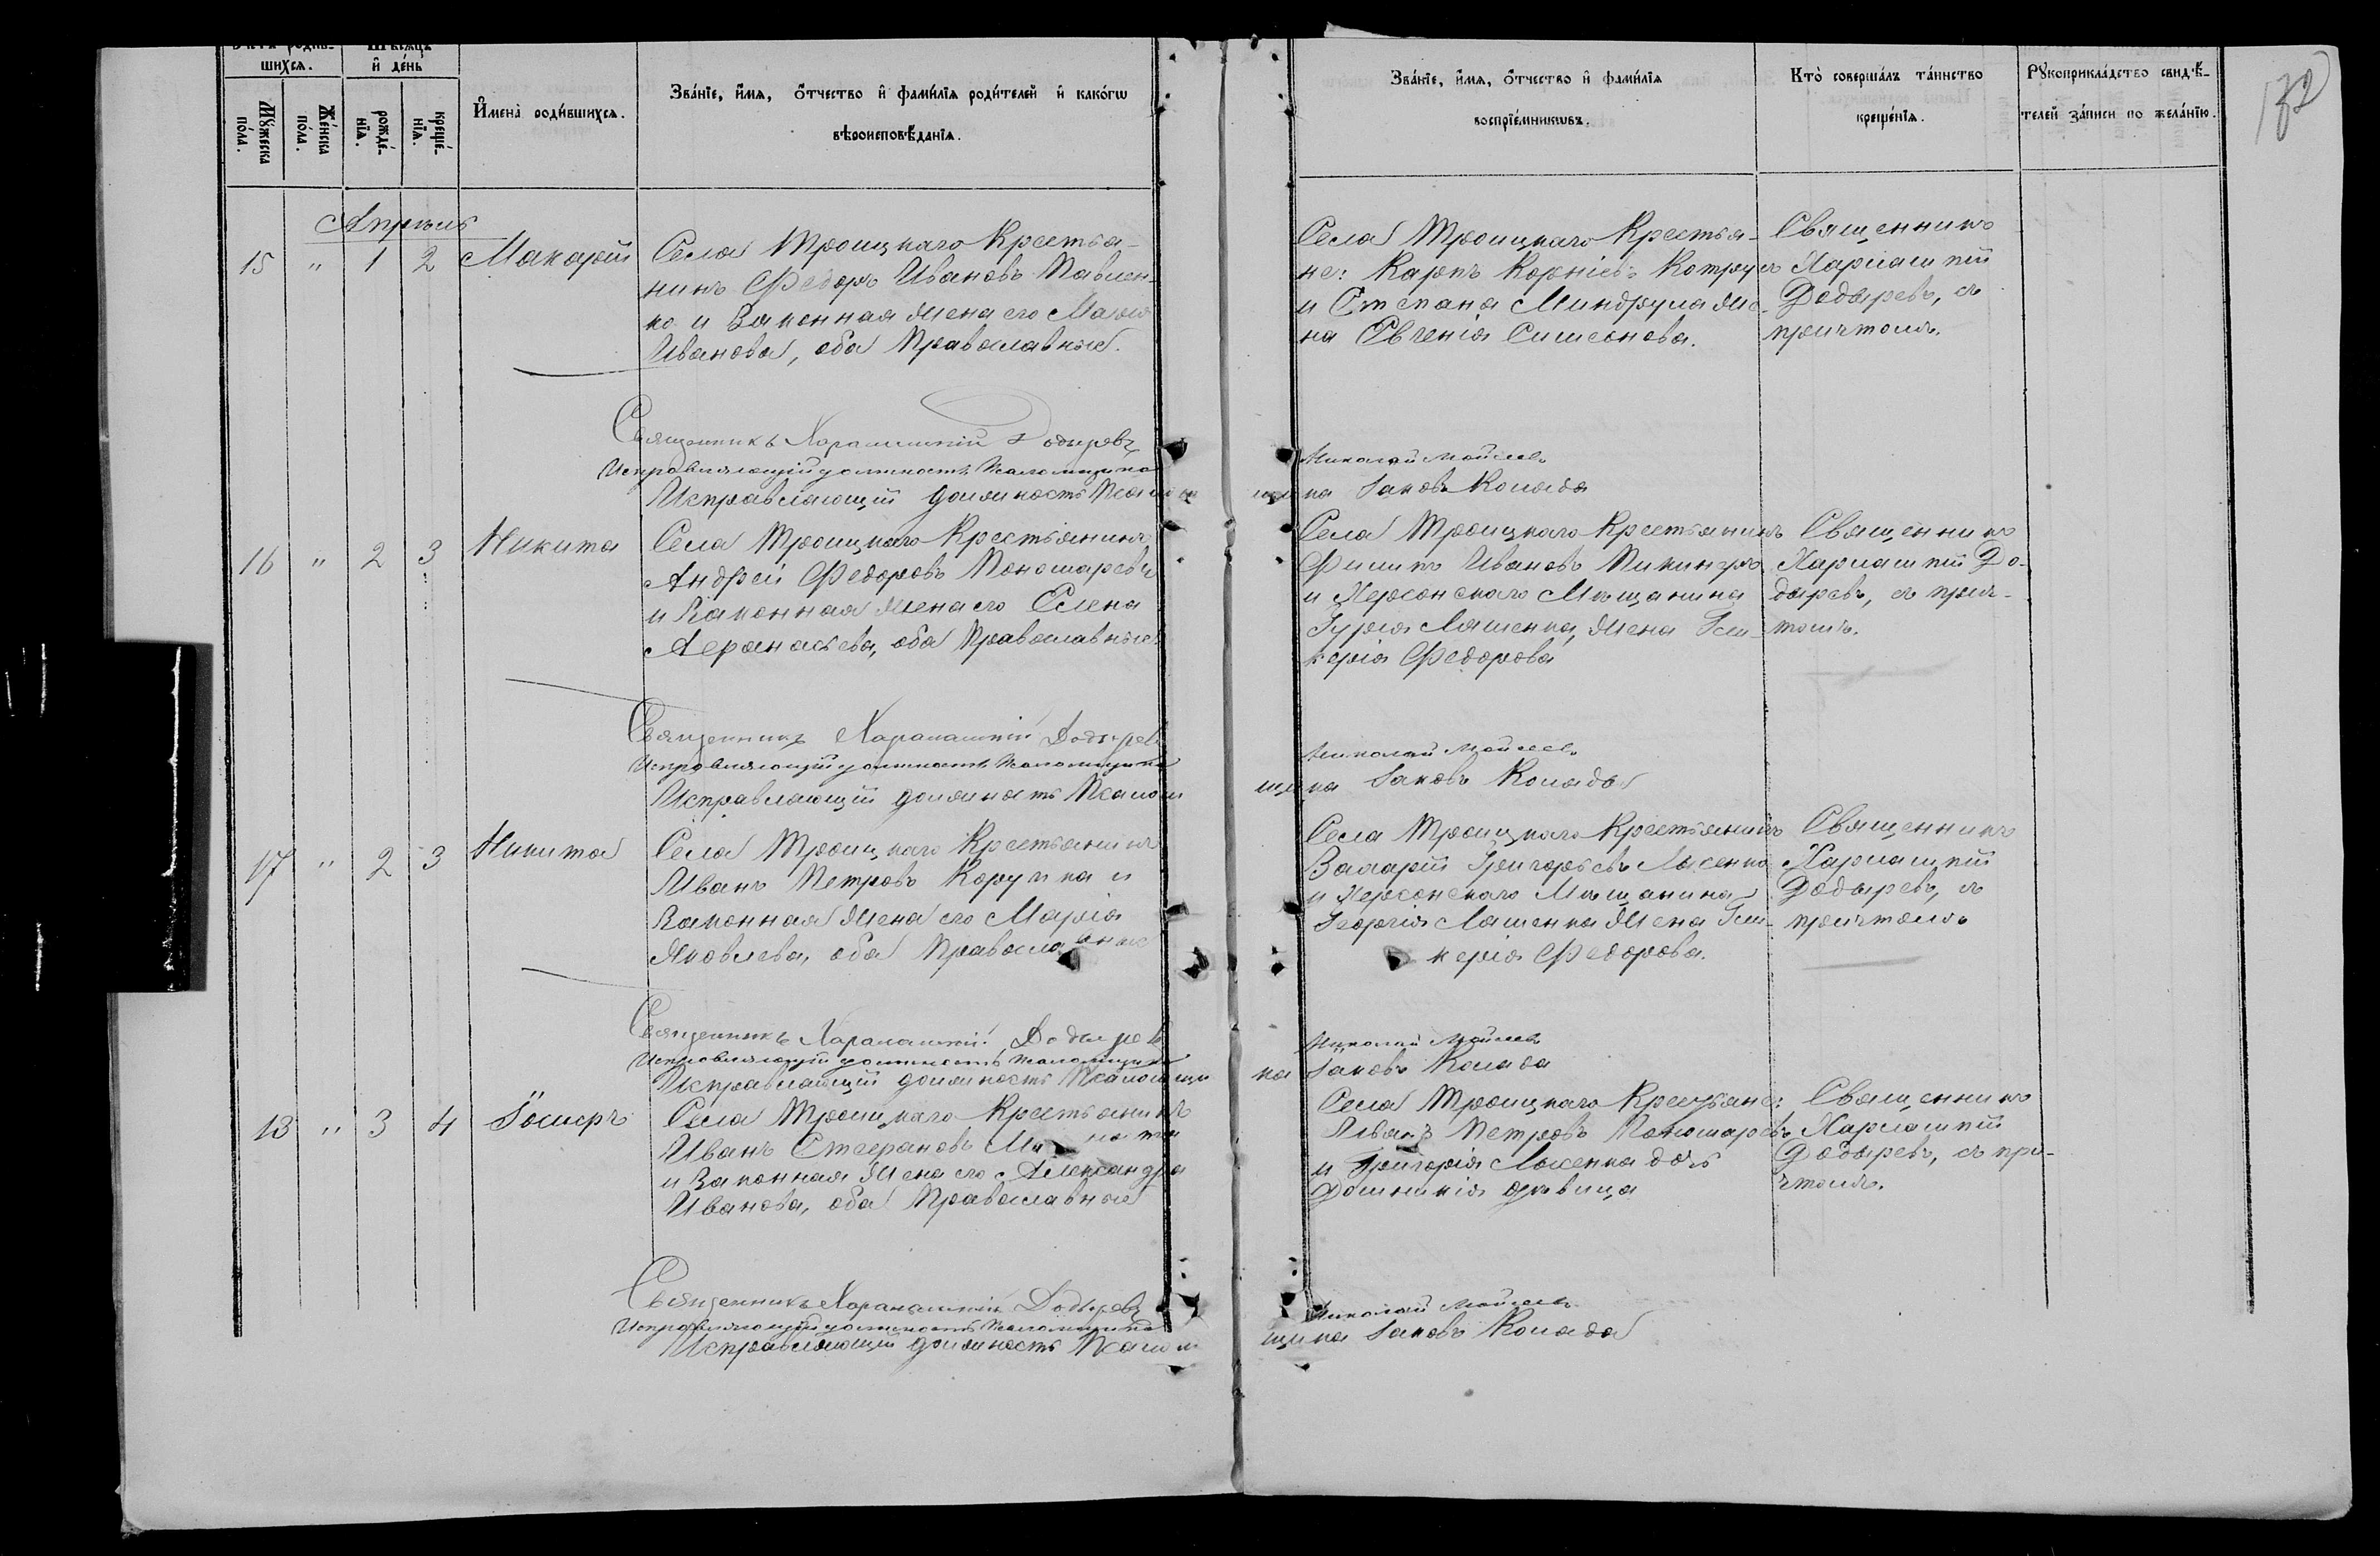 шихся.
и день
Мужеска пола.
Женска пола.
рождения.
крещения.
Имена родившихся.
Званіе, имя, отчество и фамилія родителей и какогω
вѣроисповѣданія.
Званіе, имя, отчество и фамилія
воспріемниковъ.
Кто совершалъ таинство
крещенія.
Рукоприкладство свидѣ-
телей записи по желанію.
132
Апрѣль
15 " 1 2 Макарій
Села Троицкаго Крестья-
нинъ Федоръ Ивановъ Павлен-
ко и Законная жена его Марія
Иванова, оба Православные.
Села Троицкаго Крестья-
не: Карпъ Корніевъ Котруцъ
и Степана Миндрула же-
на Евгенія Симеонова.
Священникъ
Харлампій
Додыревъ, съ
причтомъ.
Священникъ Харалампій Додыревъ
Исправляющій должность Псаломщика Николай Мойсеевъ
Исправляющій должность Псаломщика Іаковъ Коляда
16 " 2 3 Никита
Села Троицкаго Крестьянинъ
Андрей Федоровъ Пономаревъ
и Законная жена его Елена
Аѳанасьева, оба Православные
Села Троицкаго Крестьянинъ
Филипъ Ивановъ Пикинеръ
и Херсонскаго Мѣщанина
Гурія Ляшенка, жена Гли-
керія Федорова
Священникъ
Харлампій До-
дыревъ, съ прич-
томъ.
Священникъ Харалампій Додыревъ
Исправляющій должность Псаломщика Николай Мойсеевъ
Исправляющій должность Псаломщика Іаковъ Коляда
17 " 2 3 Никита
Села Троицкаго Крестьянинъ
Иванъ Петровъ и
Законная жена его Марія
Яковлева, оба Православные
Села Троицкаго Крестьянинъ
Захарій Григорьевъ Лысенко
и Херсонскаго Мѣщанина
Георгія Ляшенка жена Гли-
керія Федорова.
Священникъ
Харлампій
Додыревъ, съ
причтомъ
Священникъ Харалампій Додыревъ
Исправляющій должность Псаломщика Николай Мойсеевъ
Исправляющій должность Псаломщика Іаковъ Коляда
18 " 3 4 Іосифъ
Села Троицкаго Крестьянинъ
Иванъ Стефановъ
и Законная жена его Александра
Иванова, оба Православные
Села Троицкаго Крестьяне:
Иванъ Петровъ Пономаревъ
и Григорія Лысенка дочь
Домникія дѣвица
Священникъ
Харлампій
Додыревъ, съ при-
чтомъ.
Священникъ Харалампій Додыревъ
Исправляющій должность Псаломщика Николай Мойсеевъ
Исправляющій должность Псаломщика Іаковъ Коляда